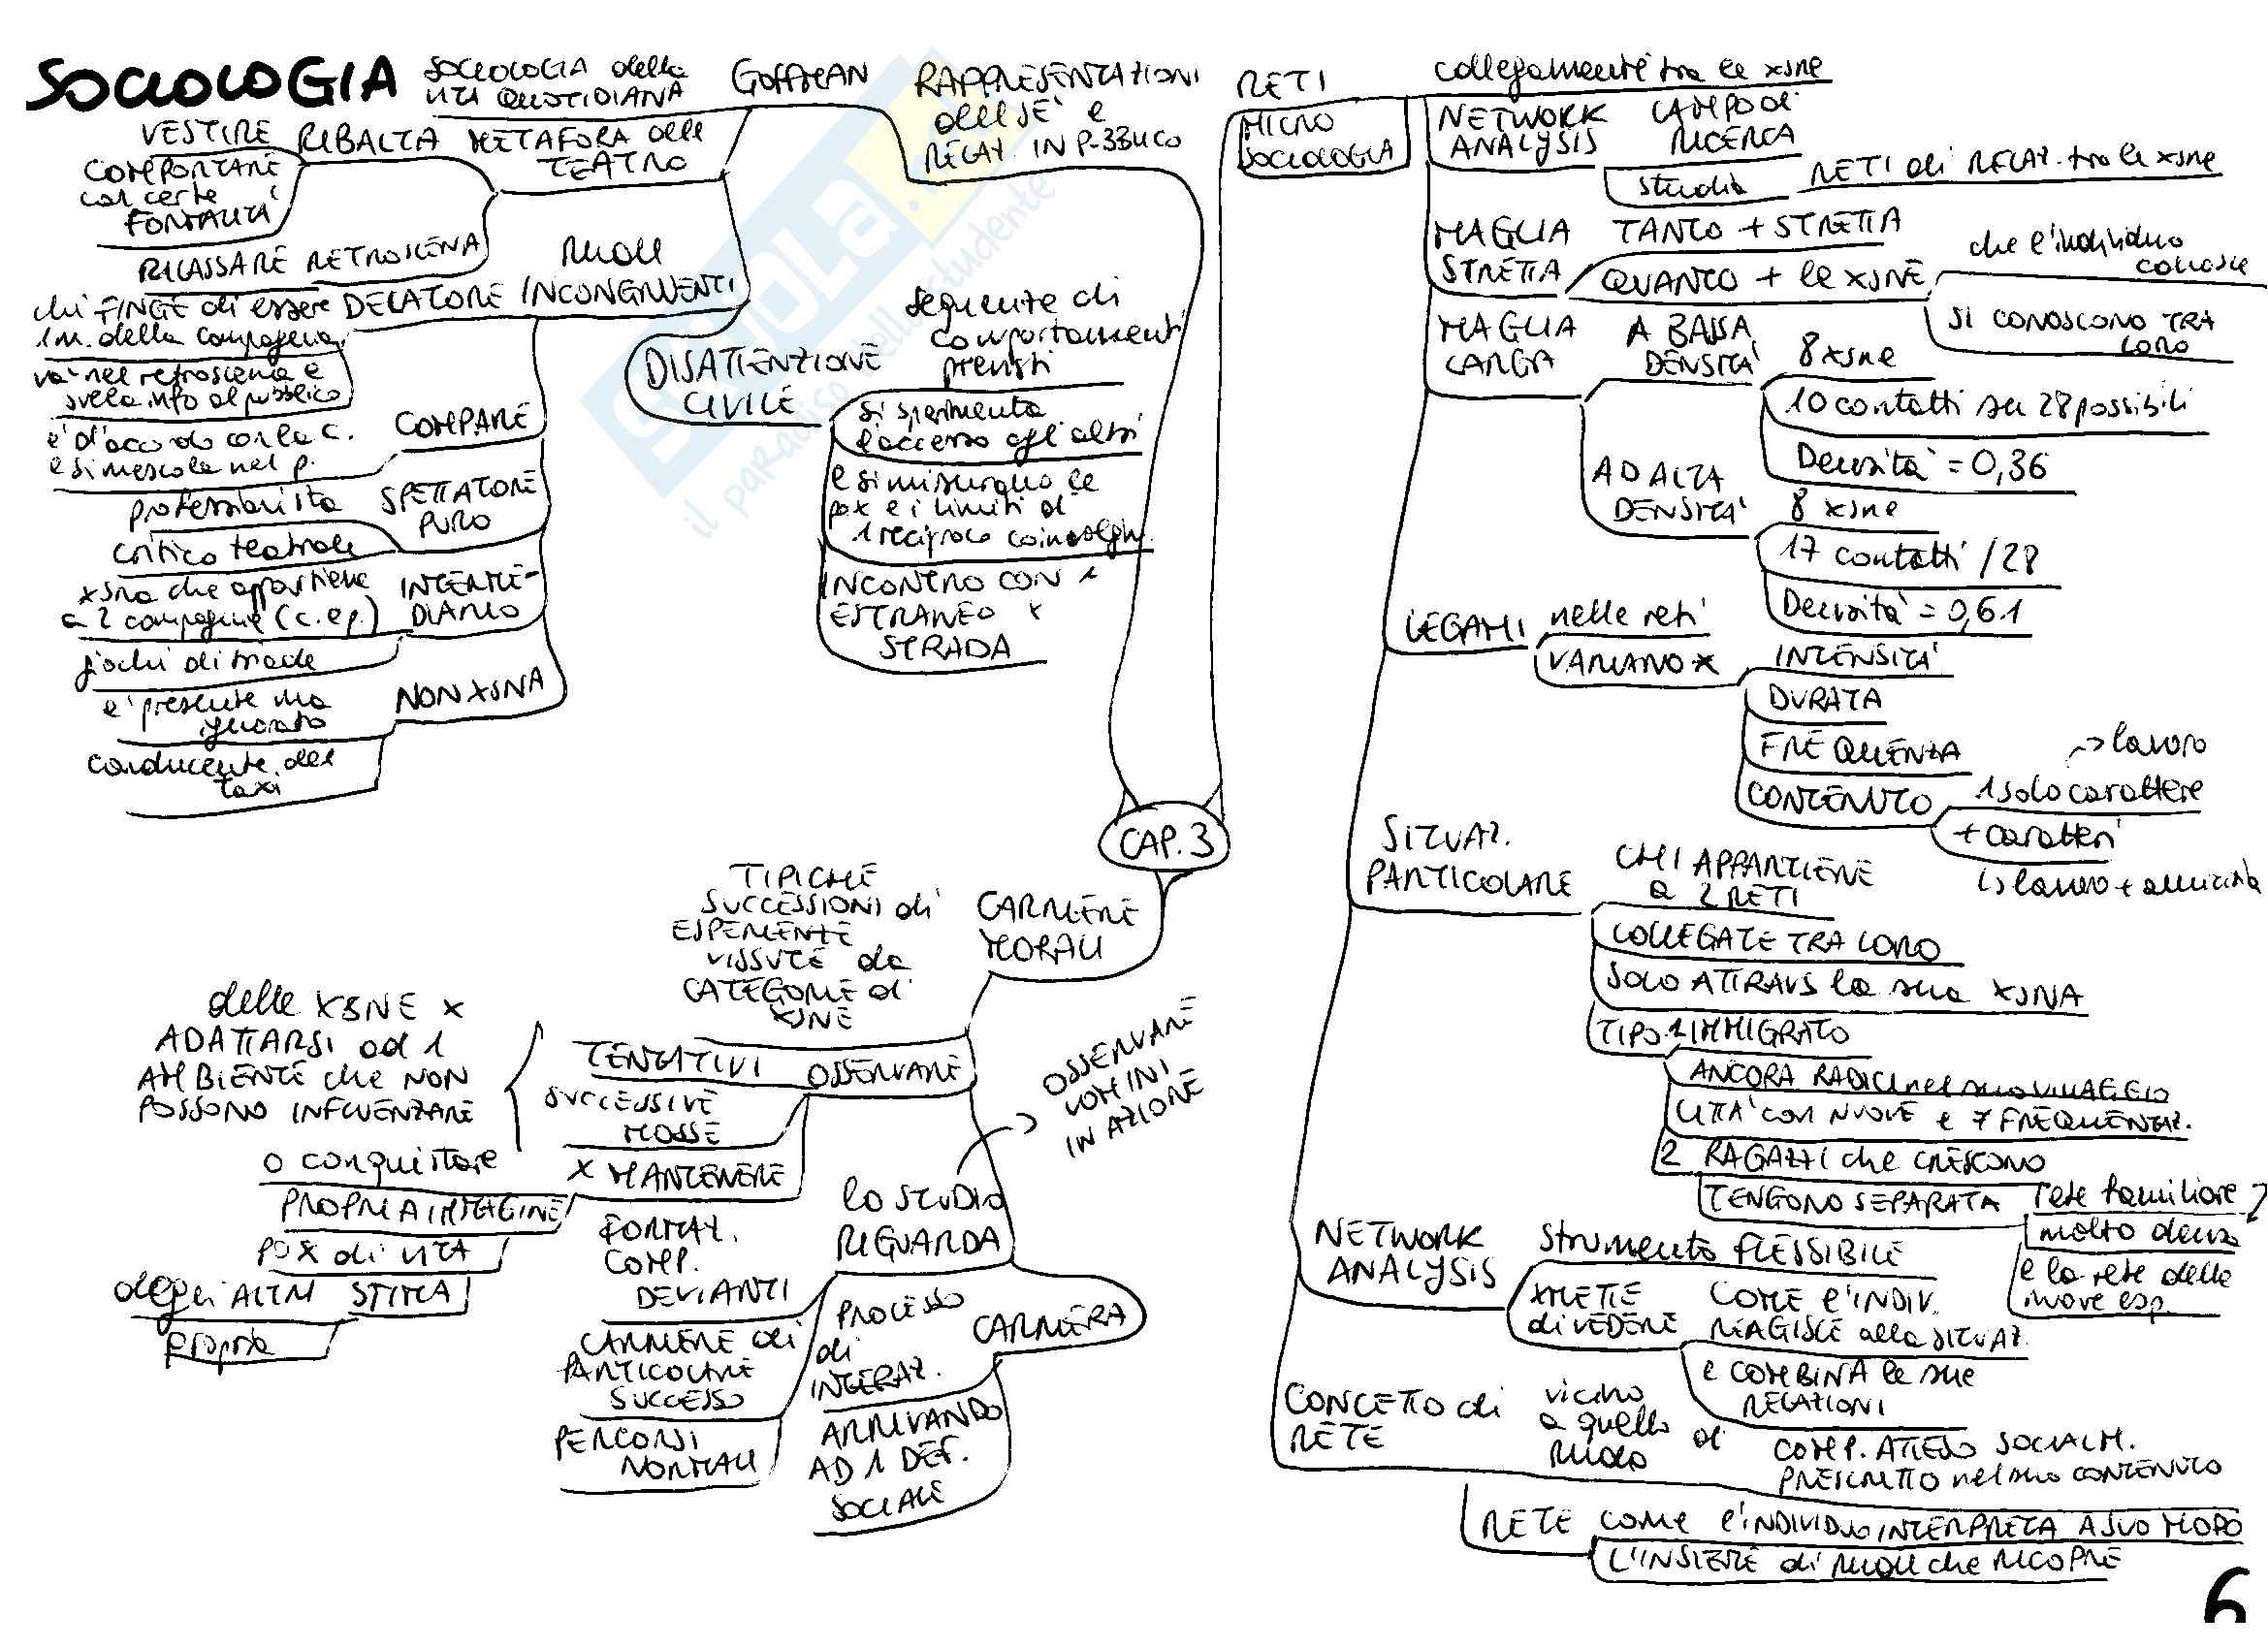 SOCIOLOGIA
SOCIOLOGIA della
VITA QUOTIDIANA
GOFFMAN
RAPPRESENTAZIONI
dell SE' e
RELAZ. IN P-BBLICO
METAFORA dell
TEATRO
RIBALTA
VESTIRE
COMPORTARE
con certe
FORMALITA'
RETROSCENA
RILASSARE
RUOLI
INCONGRUENTI
DELATORE
chi FINGE di essere
1 m. della compagnia,
va' nel retroscena e
svela info al pubblico
COMPARE
e' d'accordo con la c.
e si mescola nel p.
SPETTATORE
PURO
professionista
critico teatrale
INTERME-
DIARIO
xsna che appartiene
a 2 compagnie (c. e p.)
giochi di triade
NON XSNA
e' presente ma
ignorato
conducente del
taxi
DISATTENZIONE
CIVILE
sequenze di
comportamenti
previsti
si sperimenta
l'accesso agli altri
e si misurano le
pox e i limiti di
1 reciproco coinvolgim.
INCONTRO CON 1
ESTRANEO x
STRADA
CAP. 3
RETI
MICRO
SOCIOLOGIA
collegamenti tra le xsne
NETWORK
ANALYSIS
CAMPO di
RICERCA
studia
RETI di RELAZ. tra le xsne
MAGLIA
STRETTA
TANTO + STRETTA
QUANTO + le XSNE
che l'individuo
conosce
SI CONOSCONO TRA
LORO
MAGLIA
LARGA
A BASSA
DENSITA'
8 xsne
10 contatti su 28 possibili
Densita' = 0,36
AD ALTA
DENSITA'
8 xsne
17 contatti / 28
Densita' = 0,61
LEGAMI
nelle reti
VARIANO X
INTENSITA'
DURATA
FREQUENZA
CONTENUTO
-> lavoro
1 solo carattere
+ caratteri
-> lavoro + amicizia
SITUAZ.
PARTICOLARE
CHI APPARTIENE
a 2 RETI
COLLEGATE TRA LORO
SOLO ATTRAVS la sua XSNA
TIPO 1 IMMIGRATO
ANCORA RADICI nel suo VILLAGGIO
CITTA' con NUOVE e ≠ FREQUENTAZ.
2 RAGAZZI che CRESCONO
TENGONO SEPARATA
rete familiare
molto densa
e la rete delle
nuove esp.
NETWORK
ANALYSIS
strumento FLESSIBILE
XMETTE
di VEDERE
COME l'INDIV.
REAGISCE alla SITUAZ.
e COMBINA le sue
RELAZIONI
CONCETTO di
RETE
vicino
a quello
di
RUOLO
COMP. ATTESO SOCIALM.
PRESCRITTO nel suo CONTENUTO
RETE come l'INDIVIDUO INTERPRETA A SUO MODO
L'INSIEME di RUOLI che RICOPRE
CARRIERE
MORALI
TIPICHE
SUCCESSIONI di
ESPERIENZE
VISSUTE da
CATEGORIE di
XSNE
OSSERVARE
TENTATIVI
SUCCESSIVE
MOSSE
delle XSNE x
ADATTARSI ad 1
AMBIENTE che NON
POSSONO INFLUENZARE
X MANTENERE
o conquistare
PROPRIA IMMAGINE
POX di VITA
STIMA
degli ALTRI
propria
OSSERVARE
UOMINI
IN AZIONE
lo STUDIO
RIGUARDA
FORMAZ.
COMP.
DEVIANTI
CARRIERE di
PARTICOLARE
SUCCESSO
PERCORSI
NORMALI
CARRIERA
PROCESSO
di
INTERAZ.
ARRIVANDO
AD 1 DEF.
SOCIALE
6
SKUOLA
il paradiso dello studente